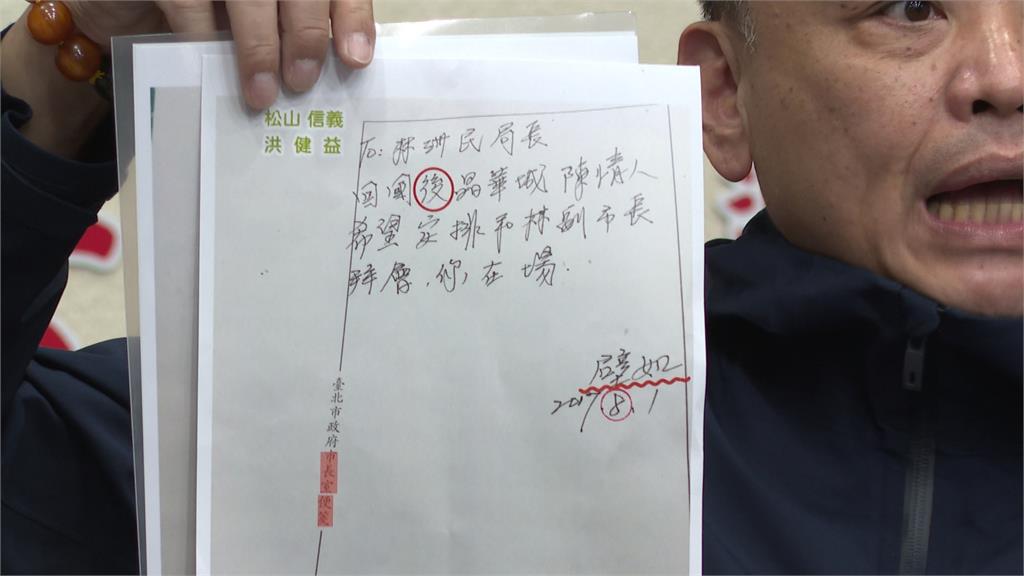 松山 信義
洪 健 益
To: 林洲民局長
回國後晶華城陳情人
希望安排和林副市長
拜會,你在場.
壁如
2017 8. 1
臺北市政府市長室便箋